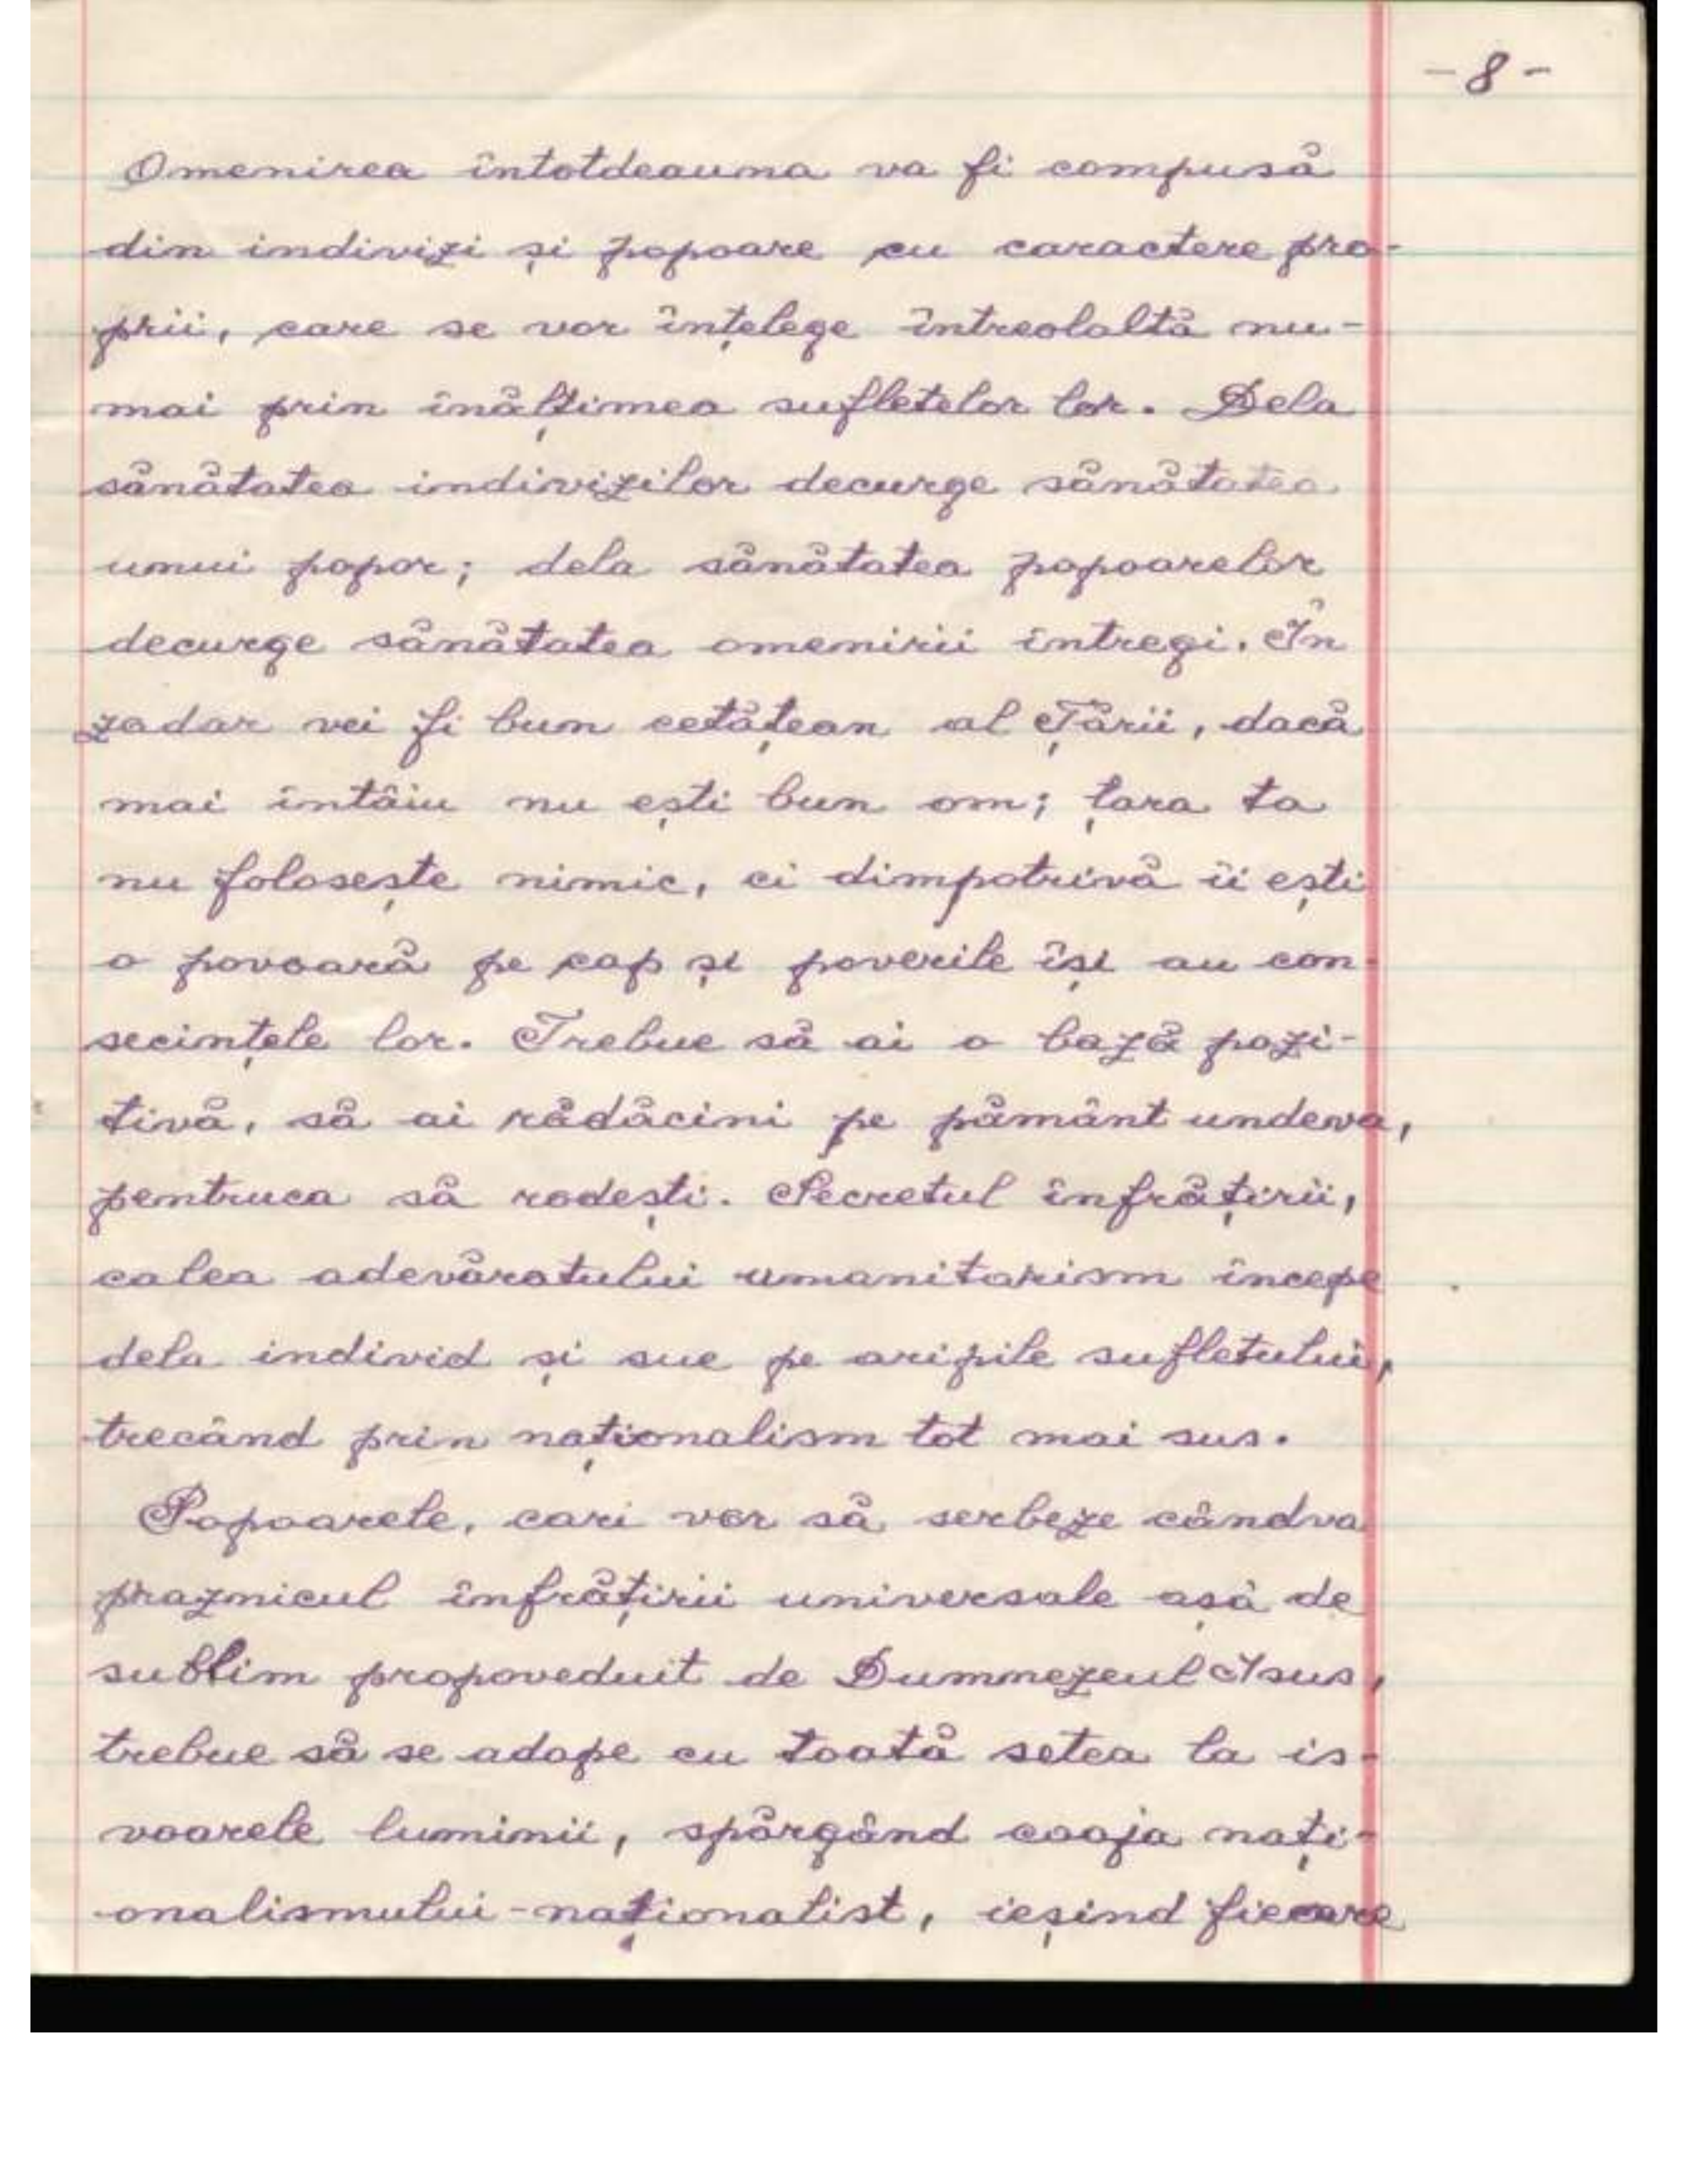 -8-
Omenirea întotdeauna va fi compusă
din indivizi și popoare cu caractere pro-
prii, care se vor înțelege întreolaltă nu-
mai prin înălțimea sufletelor lor. Dela
sănătatea indivizilor decurge sănătatea
unui popor; dela sănătatea popoarelor
decurge sănătatea omenirii întregi. În
zadar vei fi bun cetățean al Țării, dacă
mai întâiu nu ești bun om; țara ta
nu folosește nimic, ci dimpotrivă îi ești
o povoară pe cap și poverile își au con-
secințele lor. Trebue să ai o bază pozi-
tivă, să ai rădăcini pe pământ undeva,
pentruca să rodești. Secretul înfrățirii,
calea adevăratului umanitarism începe
dela individ și sue pe aripile sufletului,
trecând prin naționalism tot mai sus.
Popoarele, cari vor să serbeze cândva
praznicul înfrățirii universale așà de
sublim propoveduit de Dumnezeul Isus,
trebue să se adape cu toată setea la is-
voarele luminii, spărgând coaja nați-
onalismului-naționalist, ieșind fiecare